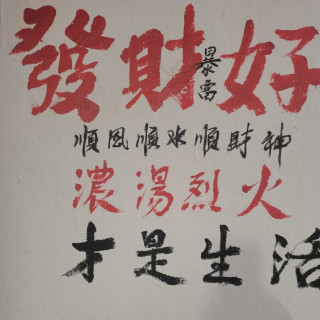 發財好
暴富
順風順水順財神
濃湯烈火
才是生活